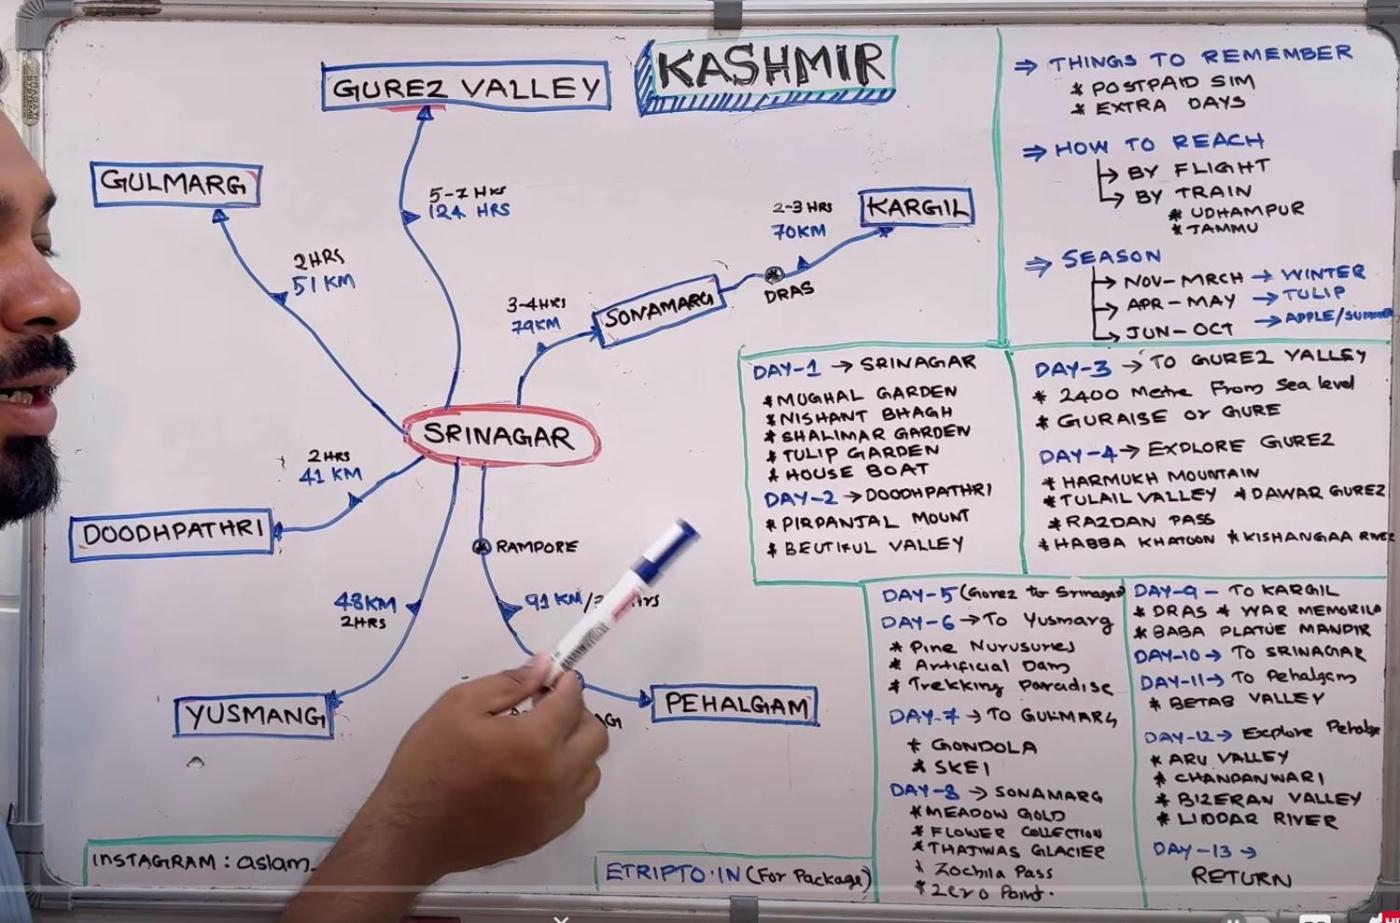 KASHMIR
GUREZ VALLEY
GULMARG
5-7 HRS
124 HRS
2-3 HRS
70KM
KARGIL
2HRS
51 KM
3-4HRS
79KM
SONAMARG
DRAS
SRINAGAR
2HRS
41 KM
DOODHPATHRI
RAMPORE
48KM
2HRS
91 KM/
YUSMANG
PEHALGAM
INSTAGRAM : aslam_
ETRIPTO.IN (For Package)
⇒ THINGS TO REMEMBER
* POSTPAID SIM
* EXTRA DAYS
⇒ HOW TO REACH
→ BY FLIGHT
→ BY TRAIN
* UDHAMPUR
* JAMMU
⇒ SEASON
→ NOV-MRCH → WINTER
→ APR-MAY → TULIP
→ JUN-OCT → APPLE/SUMME
DAY-1 → SRINAGAR
* MUGHAL GARDEN
* NISHANT BHAGH
* SHALIMAR GARDEN
* TULIP GARDEN
* HOUSE BOAT
DAY-2 → DOODHPATHRI
* PIRPANJAL MOUNT
* BEUTIFUL VALLEY
DAY-3 → TO GUREZ VALLEY
* 2400 Metre From Sea level
* GURAISE or GURE
DAY-4 → EXPLORE GUREZ
* HARMUKH MOUNTAIN
* TULAIL VALLEY * DAWAR GUREZ
* RAZDAN PASS
* HABBA KHATOON * KISHANGAA RIVER
DAY-5 (Gurez to Srinagar)
DAY-6 → To Yusmarg
* Pine Nurusuries
* Artificial Dam
* Trekking Paradise
DAY-7 → TO GULMARG
* GONDOLA
* SKEI
DAY-8 → SONAMARG
* MEADOW GOLD
* FLOWER COLLECTION
* THAJWAS GLACIER
* Zochila Pass
* Zero Point.
DAY-9 - TO KARGIL
* DRAS * WAR MEMORILA
* BABA PLATUE MANDIR
DAY-10 → TO SRINAGAR
DAY-11 → To Pehalgam
* BETAB VALLEY
DAY-12 → Explore Pehalga
* ARU VALLEY
* CHANDANWARI
* BIZERAN VALLEY
* LIDDAR RIVER
DAY-13 →
RETURN